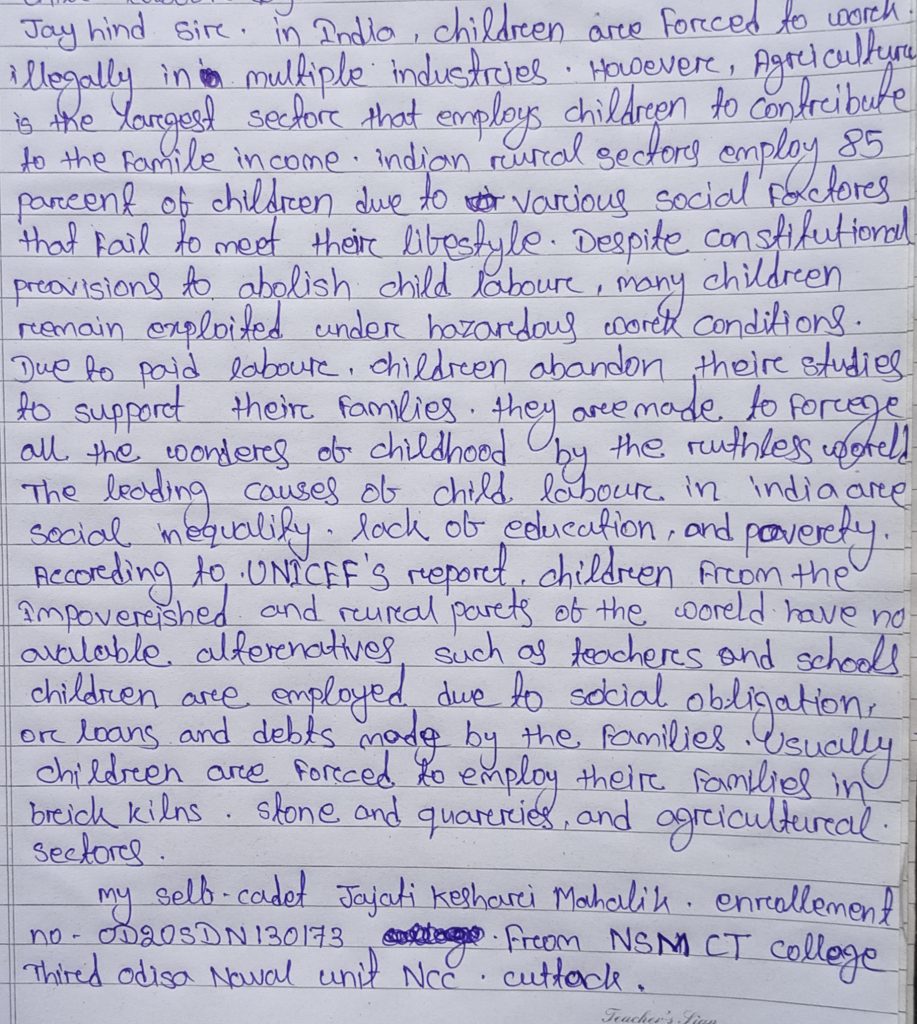 Jay hind Sir. in India, children are forced to work
illegally in multiple industries. However, Agriculture
is the largest sector that employs children to contribute
to the Famile income. indian rural sectors employ 85
parcent of children due to various social factores
that Fail to meet their libestyle. Despite constitutional
provisions to abolish child labour, many children
remain exploited under hazardous work conditions.
Due to paid labour, children abandon their studies
to support their families. they are made to forege
all the wonders of childhood by the ruthless world
The leading causes of child labour in india are
social inequality. lack of education, and poverty.
According to UNICEF's report, children From the
impoverished and rural parts of the world have no
avalable alternatives, such as teachers and schools
children are employed due to social obligation,
or loans and debts made by the families. Usually
children are forced to employ their Families in
brick kilns. stone and quareries, and agricultural.
sectors.
my self-cadet Jajati Keshari Mahalik. enrollement
no- OD20SDN130173 From NSM CT college
Third Odisa Naval unit NCC. cuttack.
Teacher's Sign